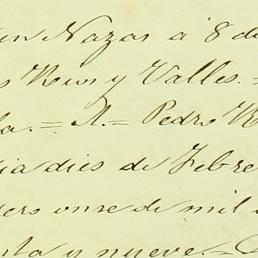 en Nazas á 8 de
Rios y Valles. =
la. = A. = Pedro R
dia dies de Febre
ero onse de mil
enta y nueve. =